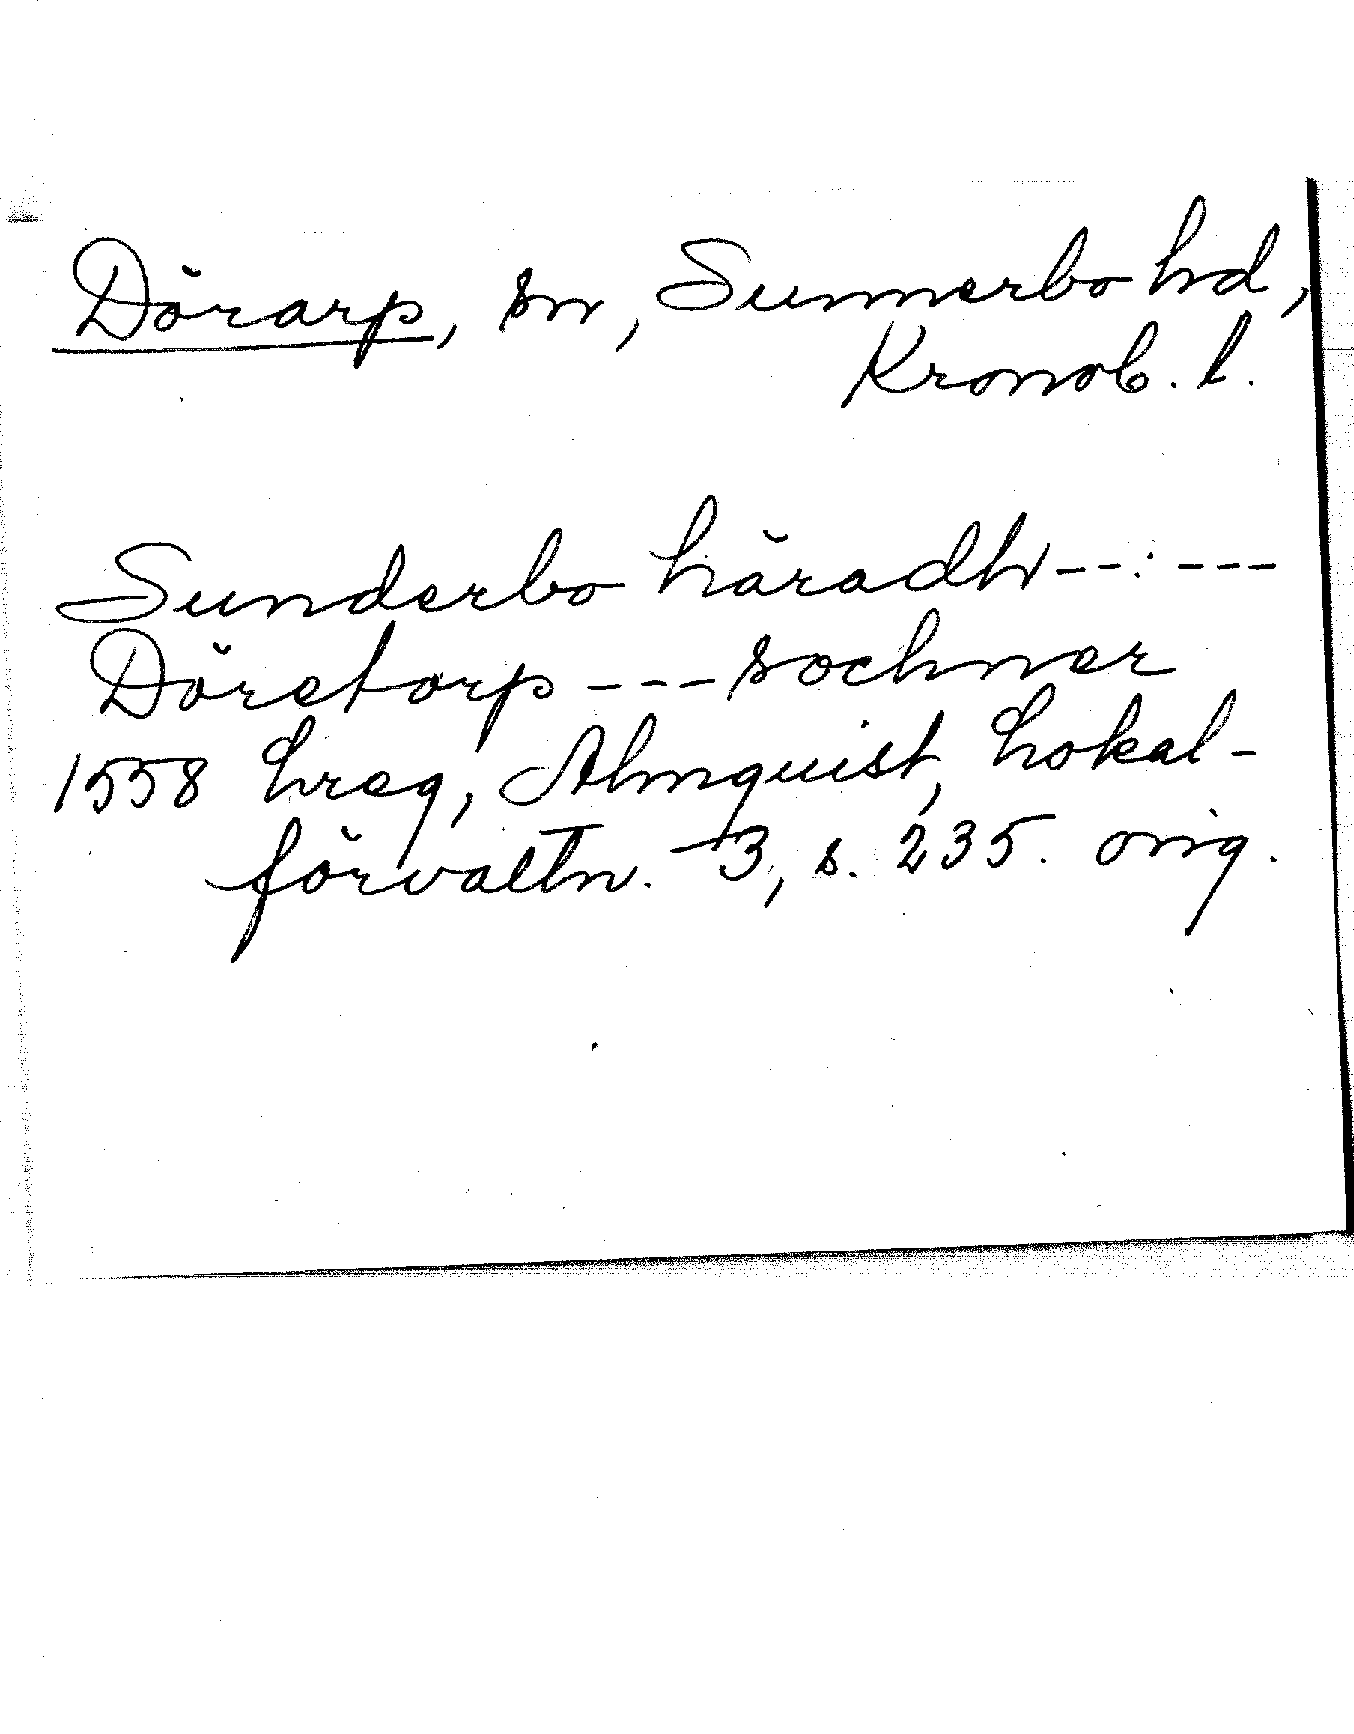 Dörarp, sn, Sunnerbo hd,
Kronob. l.
Sunderbo häradh --:---
Döretorp --- sochner
1558 hreg, Almquist, Lokal-
förvaltn. 3, s. 235. orig.